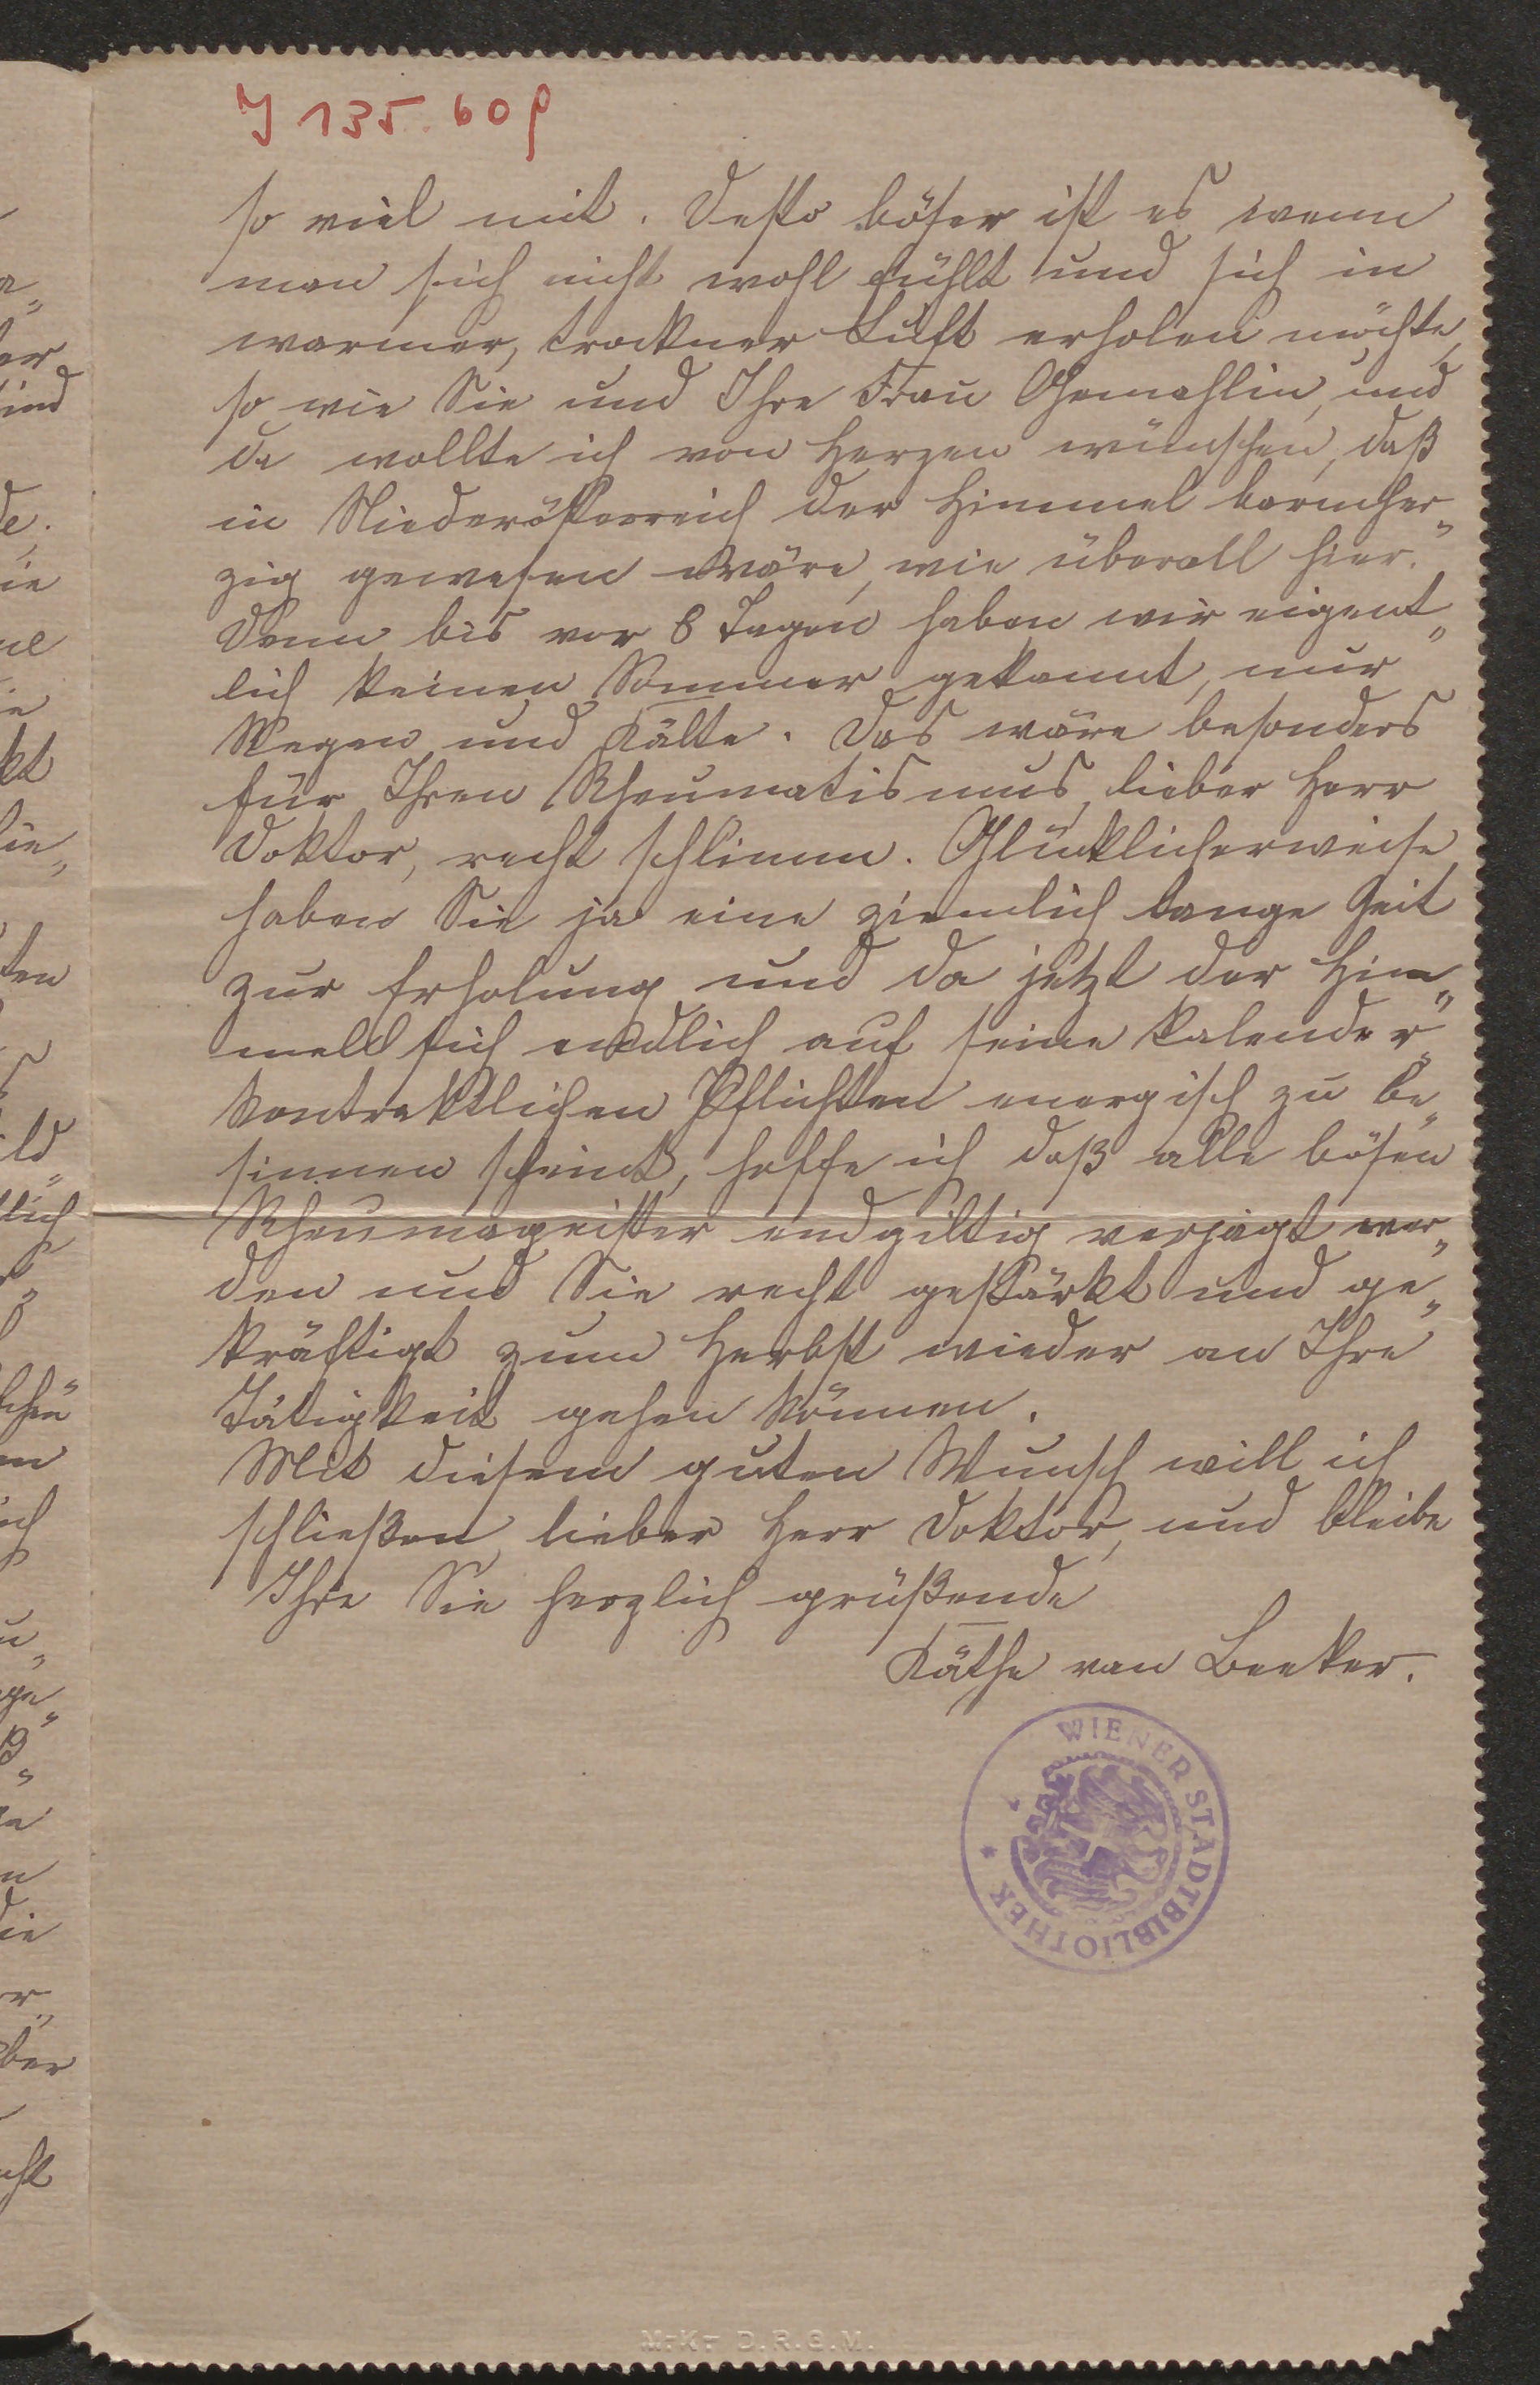 J 135.608
so viel mit. Desto böser ist es wenn
man sich nicht wohl fühlt und sich in
warmer, trockner Luft erholen möchte,
so wie Sie und Ihre Frau Gemahlin, und
da wollte ich von Herzen wünschen, daß
in Niederösterreich der Himmel barmher„
zig gewesen wäre, wie überall hier.
Denn bis vor 8 Tagen haben wir eigent„
lich keinen Sommer gekannt, nur
Regen und Kälte. Das wäre besonders
für Ihren Rheumatismus, lieber Herr
Doktor, recht schlimm. Glücklicherweise
haben Sie ja eine ziemlich lange Zeit
zur Erholung und da jetzt der Him„
mel sich endlich auf seine kalender„
kontraktlichen Pflichten energisch zu be„
sinnen scheint, hoffe ich daß alle bösen
Rheumageister endgiltig verjagt wer„
den und Sie recht gestärkt und ge„
kräftigt zum Herbst wieder an Ihre
Tätigkeit gehen können.
Mit diesem guten Wunsch will ich
schließen, lieber Herr Doktor, und bleibe
Ihre Sie herzlich grüßende
Käthe van Beeker.
WIENER STADTBIBLIOTHEK *
M-K- D.R.G.M.